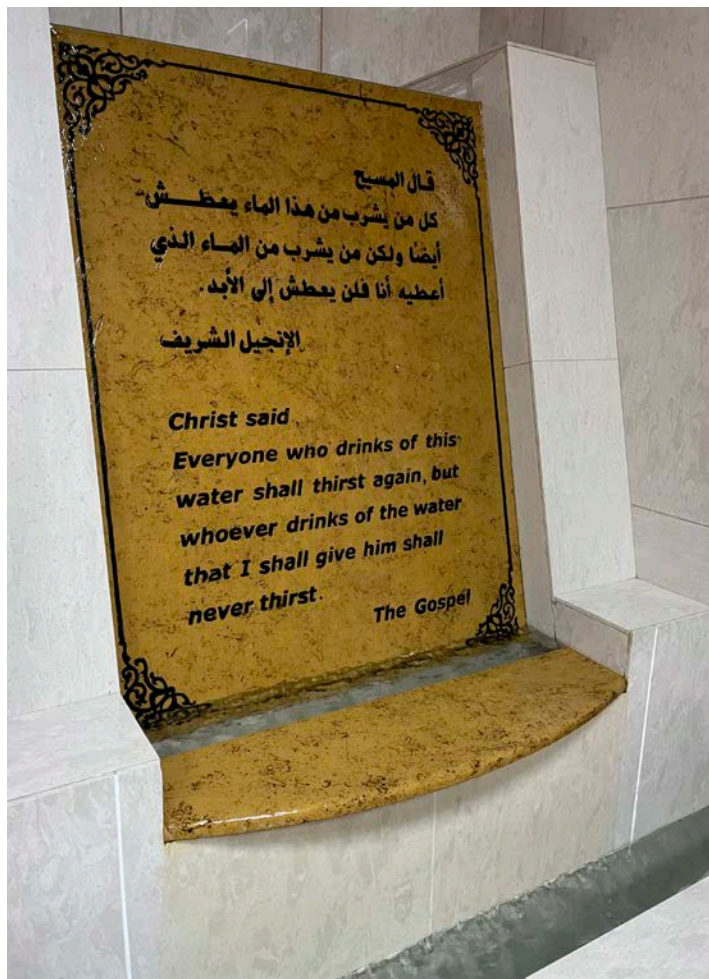 قال المسيح
كل من يشرب من هذا الماء يعطش
أيضا ولكن من يشرب من الماء الذي
أعطيه أنا فلن يعطش إلى الأبد.
الإنجيل الشريف
Christ said
Everyone who drinks of this
water shall thirst again, but
whoever drinks of the water
that I shall give him shall
never thirst.
The Gospel